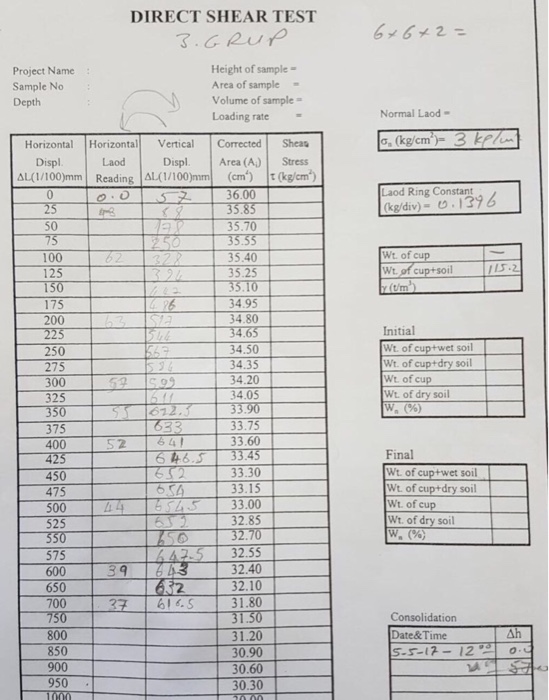 DIRECT SHEAR TEST
3. GRUP
6x6x2 =
Project Name :
Sample No :
Depth :
Height of sample =
Area of sample =
Volume of sample =
Loading rate =
Normal Laod =
σn (kg/cm²)= 3 kg/cm²
Laod Ring Constant
(kg/div) = 0.1396
Wt. of cup —
Wt. of cup+soil 115.2
γ (t/m³)
Initial
Wt. of cup+wet soil
Wt. of cup+dry soil
Wt. of cup
Wt. of dry soil
Wn (%)
Final
Wt. of cup+wet soil
Wt. of cup+dry soil
Wt. of cup
Wt. of dry soil
Wn (%)
Consolidation
Date&Time Δh
5-5-17 - 12 00 0.0
Horizontal Displ. ΔL(1/100)mm Horizontal Laod Reading Vertical Displ. ΔL(1/100)mm Corrected Area (Ai) (cm²) Shear Stress τ (kg/cm²)
0 0.0 57 36.00
25 88 35.85
50 35.70
75 250 35.55
100 62 328 35.40
125 35.25
150 35.10
175 34.95
200 63 34.80
225 34.65
250 567 34.50
275 34.35
300 59 599 34.20
325 611 34.05
350 55 622.5 33.90
375 633 33.75
400 52 641 33.60
425 646.5 33.45
450 652 33.30
475 654 33.15
500 44 654.5 33.00
525 652 32.85
550 650 32.70
575 647.5 32.55
600 39 643 32.40
650 632 32.10
700 37 616.5 31.80
750 31.50
800 31.20
850 30.90
900 30.60
950 30.30
1000 30.00